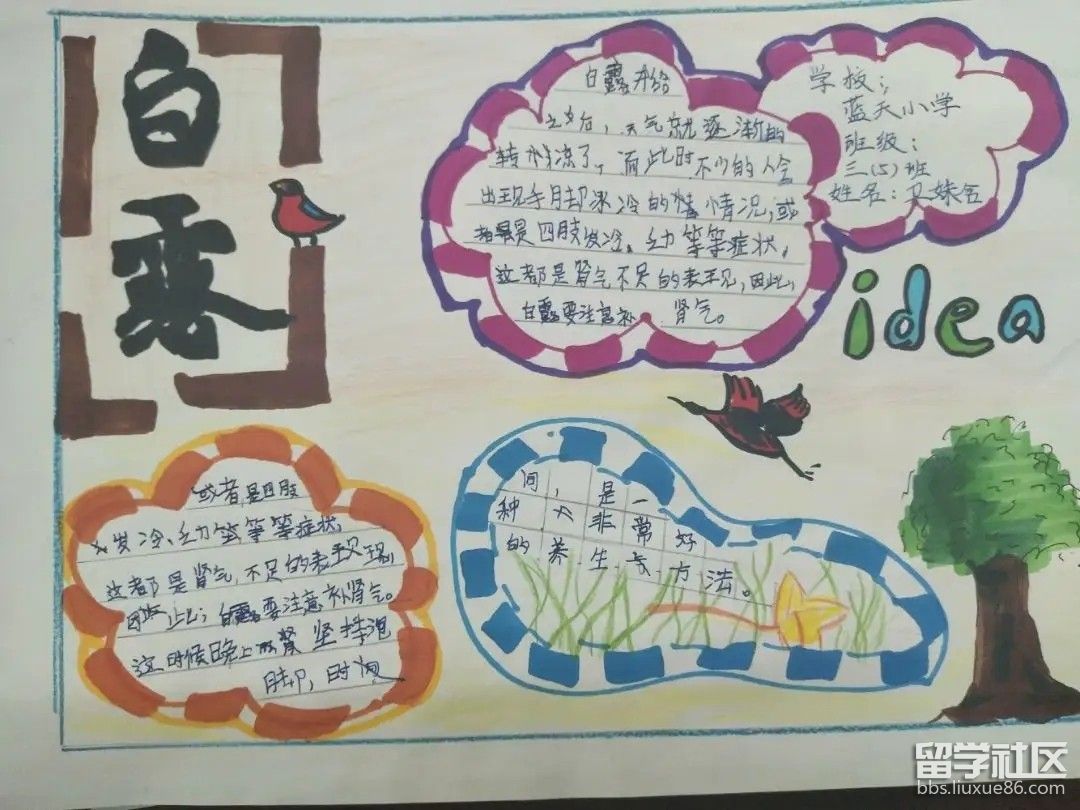 白露
白露开始
之后，天气就逐渐的
转凉了，而此时不少的人会
出现手脚冰冷的情况，或
者是四肢发冷、乏力等等症状，
这都是肾气不足的表现，因此，
白露要注意补 肾气。
学校：
蓝天小学
班级：
三(5)班
姓名：
idea
或者是四肢
发冷、乏力等等症状
这都是肾气不足的表现
因此；白露要注意补肾气。
这时候晚上 坚持泡
脚，时间
间，是一
种 非常好
的养生 方法。
留学社区
bbs.liuxue86.com